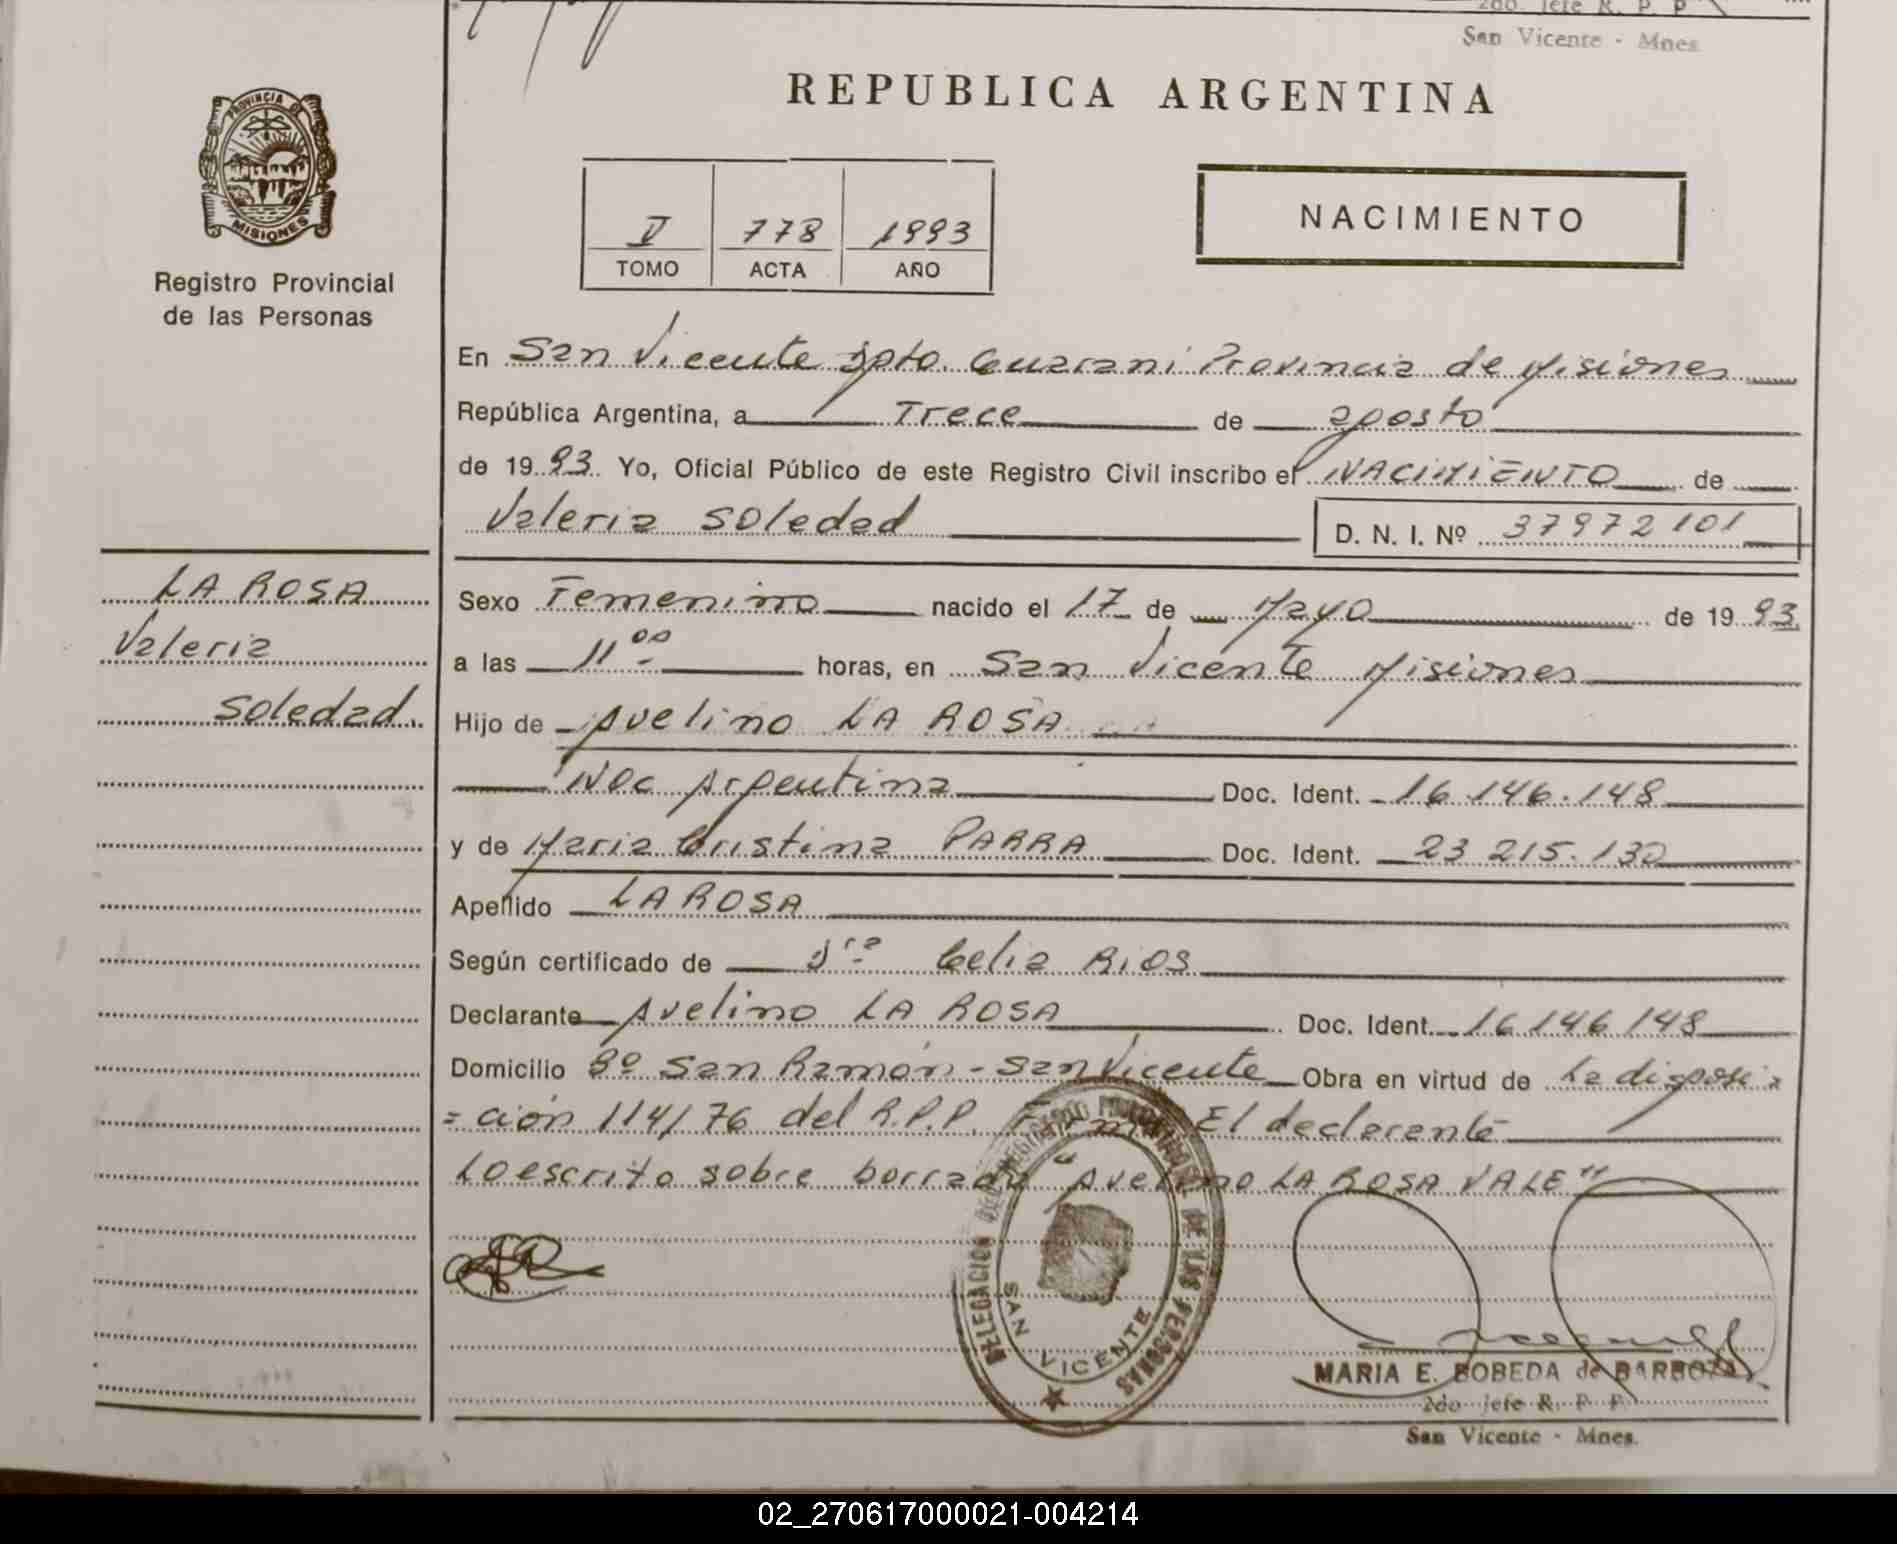 2do. Jefe R. P. P.
San Vicente - Mnes.
REPUBLICA ARGENTINA
PROVINCIA DE
MISIONES
Registro Provincial
de las Personas
V 778 1993
TOMO ACTA AÑO
NACIMIENTO
En San Vicente Dpto. Guarani Provincia de Misiones
República Argentina, a Trece de agosto
de 19 93 Yo, Oficial Público de este Registro Civil inscribo el NACIMIENTO de
Valeria Soledad D. N. I. Nº 37972101
LA ROSA
Valeria
Soledad.
Sexo Femenino nacido el 17 de Mayo de 19 93
a las 11 00 horas, en San Vicente Misiones
Hijo de Avelino LA ROSA
Nac Argentina Doc. Ident. 16.146.148
y de Maria Cristina PARRA Doc. Ident. 23 215.130
Apellido LA ROSA
Según certificado de Dra Celia RIOS
Declarante Avelino LA ROSA Doc. Ident. 16146148
Domicilio Bº San Ramón - San Vicente Obra en virtud de La disposi=
=ción 114/76 del R.P.P. Firma El declarante
Lo escrito sobre borrado "Avelino LA ROSA VALE"
DELEGACION DEL REGISTRO PROVINCIAL DE LAS PERSONAS
SAN VICENTE
MARIA E. BOBEDA de BARBOZA
2do Jefe R. P. P.
San Vicente - Mnes.
02_270617000021-004214